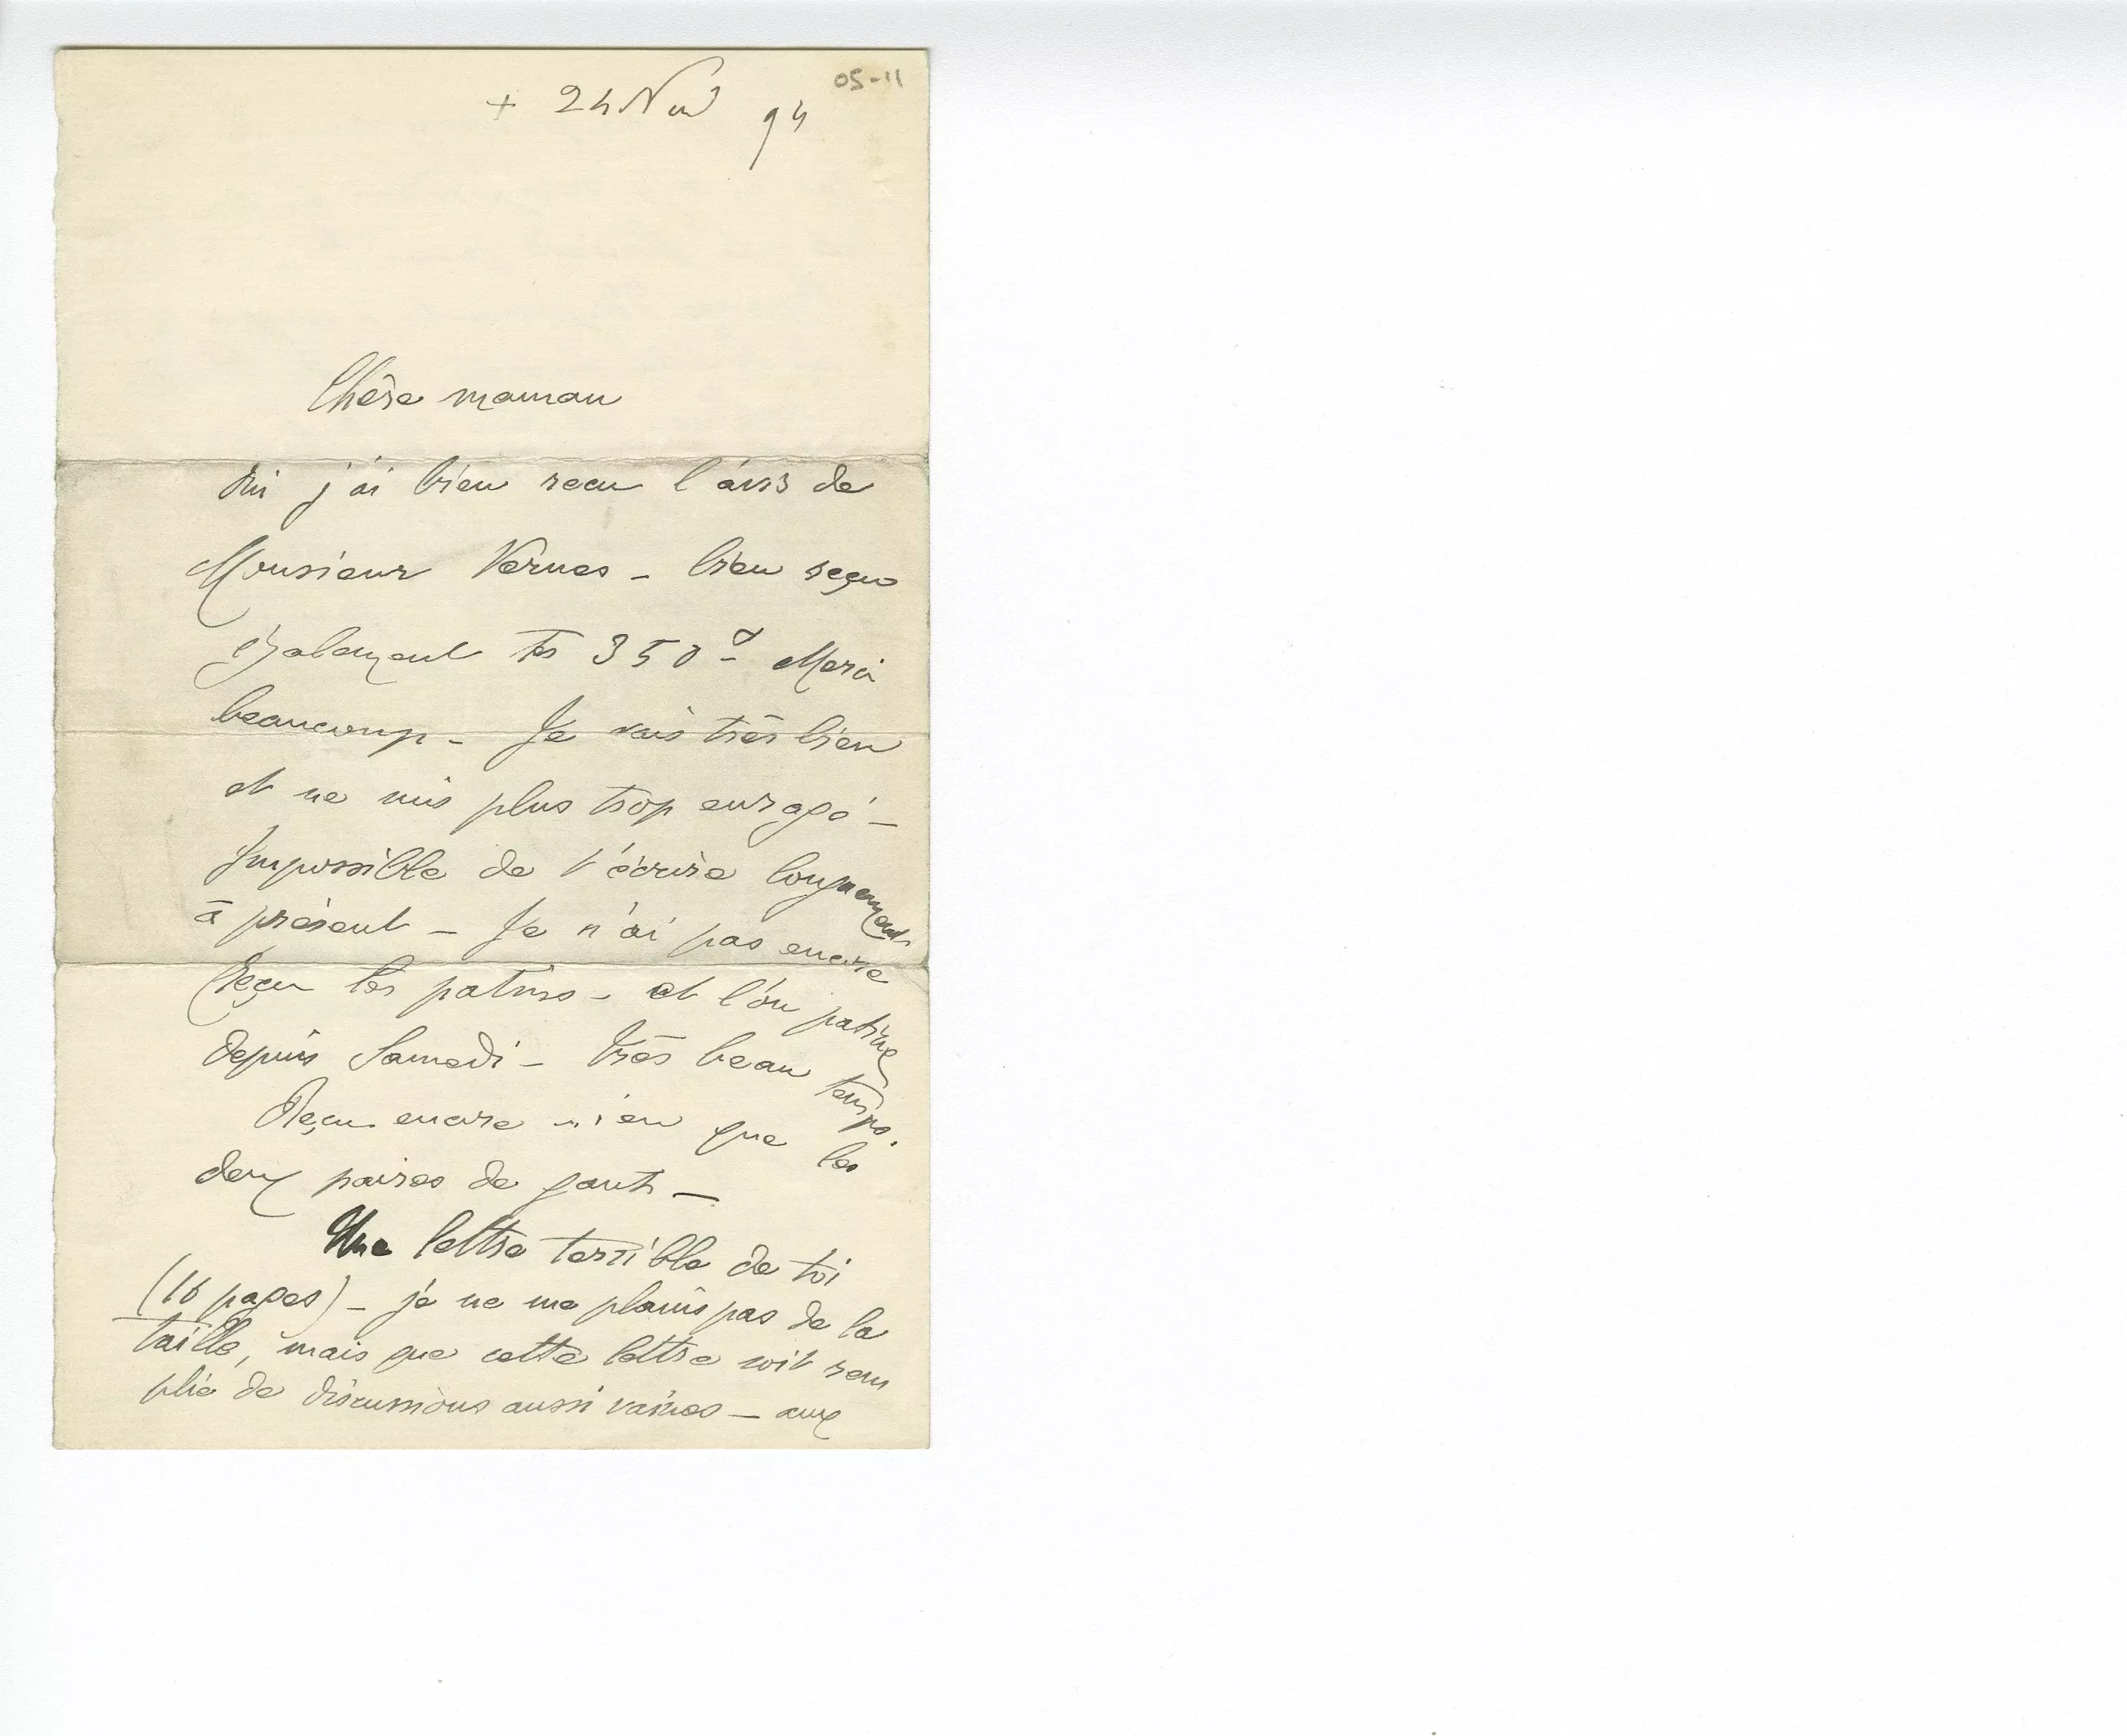 05-11
+ 24 Nov 94
Chère maman
Oui j'ai bien recu l'avis de
Monsieur Vernes - bien reçu
également tes 350 f - Merci
beaucoup - Je vais très bien
et ne suis plus trop enragé -
Impossible de t'écrire longuement
à présent - Je n'ai pas encore
Reçu les patins - et l'on patine
depuis Samedi - très beau temps.
Reçu encore rien que les
deux paires de gants -
Une lettre terrible de toi
(16 pages) - je ne me plains pas de la
taille, mais que cette lettre soit rem
plie de discussions aussi vaines - aux